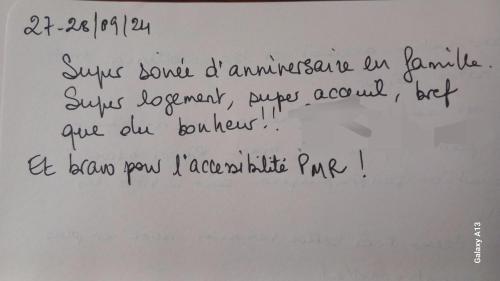 27-28/09/24
Super soirée d'anniversaire en famille.
Super logement, super acceuil, bref
que du bonheur!!
Et bravo pour l'accessibilité PMR !
Galaxy A13